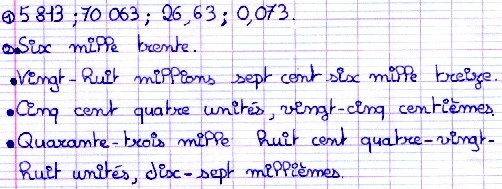 ① 5 813 ; 70 063 ; 26,63 ; 0,073.
②• Six mille trente.
• Vingt-huit millions sept cent six mille treize.
• Cinq cent quatre unités, vingt-cinq centièmes.
• Quarante-trois mille huit cent quatre-vingt-
huit unités, dix-sept millièmes.